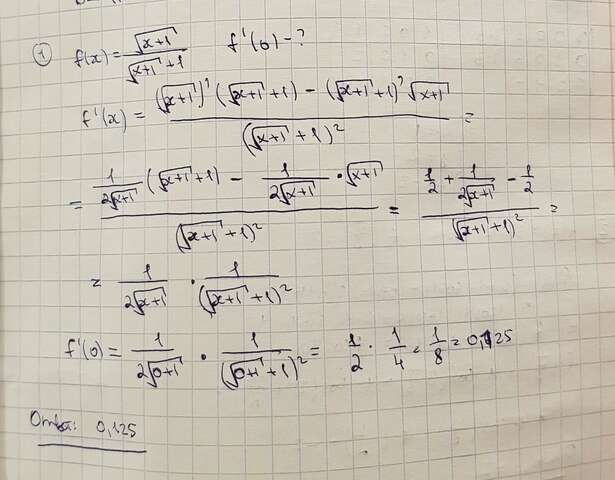 ① f(x) = √(x+1) / (√(x+1) + 1)   f'(0) - ?
f'(x) = ((√(x+1))' (√(x+1) + 1) - (√(x+1) + 1)' √(x+1)) / (√(x+1) + 1)² =
= (1/(2√(x+1)) (√(x+1) + 1) - 1/(2√(x+1)) · √(x+1)) / (√(x+1) + 1)² = (1/2 + 1/(2√(x+1)) - 1/2) / (√(x+1) + 1)² =
= 1/(2√(x+1)) · 1/(√(x+1) + 1)²
f'(0) = 1/(2√(0+1)) · 1/(√(0+1) + 1)² = 1/2 · 1/4 = 1/8 = 0,125
Ответ: 0,125